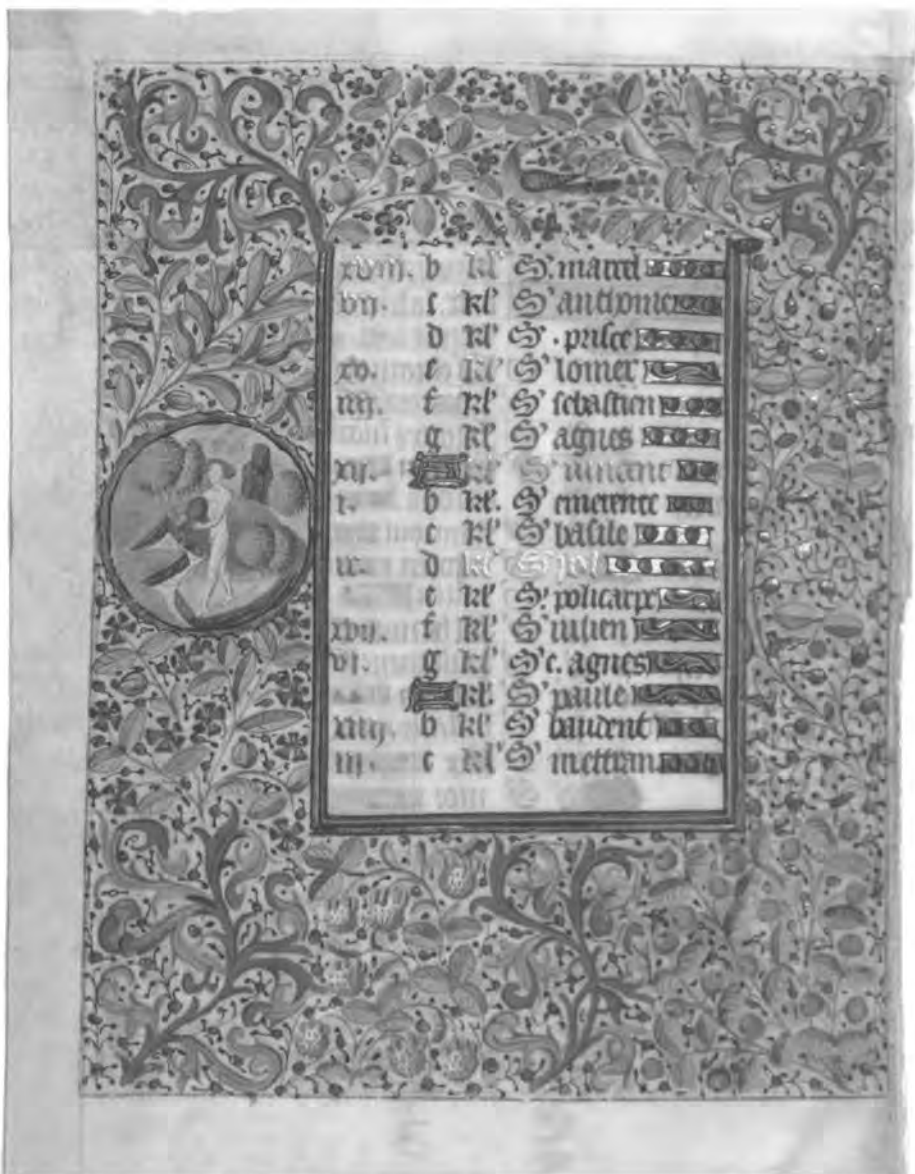 xviij. b kl' S'. marcel
vij. c kl' S' anthoine
d kl' S'. prisce
xv. e kl' S' lomer
iiij. f kl' S' sebastien
g kl' S' agnes
xij. A kl' S' vincent
i. b kl'. S' emerence
c kl' S' basile
ix. d kl' S' pol
e kl' S'. policarpe
xvij. f kl' S' iulien
vi. g kl' S'c. agnes
A kl'. S' paule
xiiij. b kl' S' baudent
iij. c kl' S' mettran